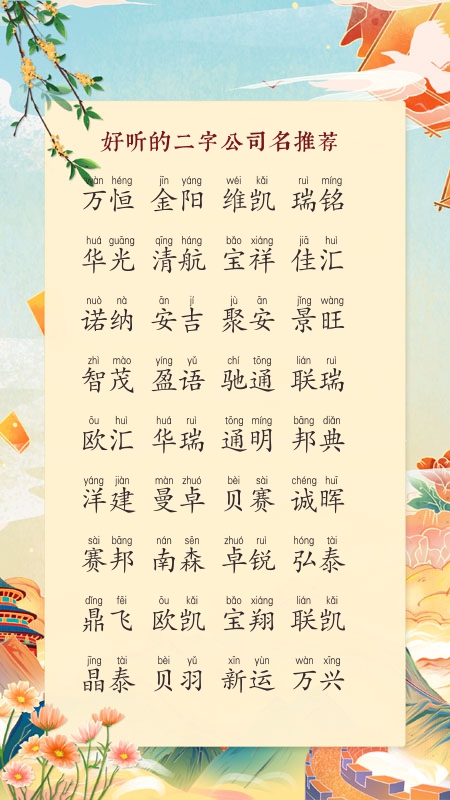 好听的二字公司名推荐
wàn héng jīn yáng wéi kǎi ruì míng
万恒 金阳 维凯 瑞铭
huá guāng qīng háng bǎo xiáng jiā huì
华光 清航 宝祥 佳汇
nuò nà ān jí jù ān jǐng wàng
诺纳 安吉 聚安 景旺
zhì mào yíng yǔ chí tōng lián ruì
智茂 盈语 驰通 联瑞
ōu huì huá ruì tōng míng bāng diǎn
欧汇 华瑞 通明 邦典
yáng jiàn màn zhuó bèi sài chéng huī
洋建 曼卓 贝赛 诚晖
sài bāng nán sēn zhuó ruì hóng tài
赛邦 南森 卓锐 弘泰
dǐng fēi ōu kǎi bǎo xiáng lián kǎi
鼎飞 欧凯 宝翔 联凯
jīng tài bèi yǔ xīn yùn wàn xīng
晶泰 贝羽 新运 万兴